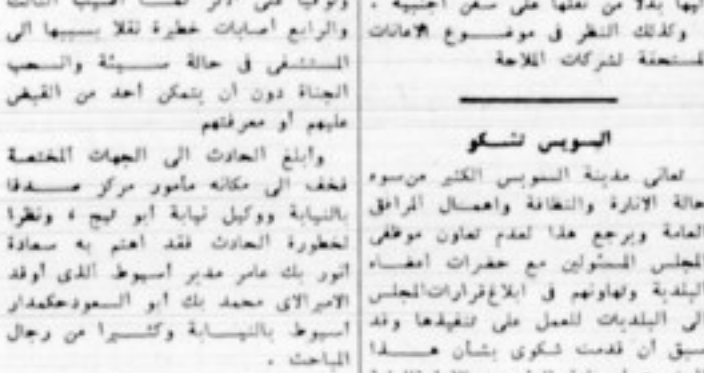 اليها بدلا من نقلها على سفن اجنبية .
وكذلك النظر فى موضوع الاعانات
المستحقة لشركات الملاحة
السويس تشكو
تعانى مدينة السويس الكثير من سوء
حالة الانارة والنظافة واهمال المرافق
العامة ويرجع هذا لعدم تعاون موظفى
المجلس المسئولين مع حضرات أعضاء
البلدية وتهاونهم فى ابلاغ قرارات المجلس
الى البلديات للعمل على تنفيذها وقد
سبق أن قدمت شكوى بشأن هذا
والرابع أصابات خطيرة نقلا بسببها الى
المستشفى فى حالة سيئة وانسحب
الجناة دون أن يتمكن أحد من القبض
عليهم أو معرفتهم
وأبلغ الحادث الى الجهات المختصة
فخف الى مكانه مأمور مركز صدفا
بالنيابة ووكيل نيابة أبو تيج ، ونظرا
لخطورة الحادث فقد اهتم به سعادة
أنور بك عامر مدير أسيوط الذى أوفد
الاميرالاى محمد بك أبو السعود حكمدار
أسيوط بالنيابة وكثيرا من رجال
المباحث .